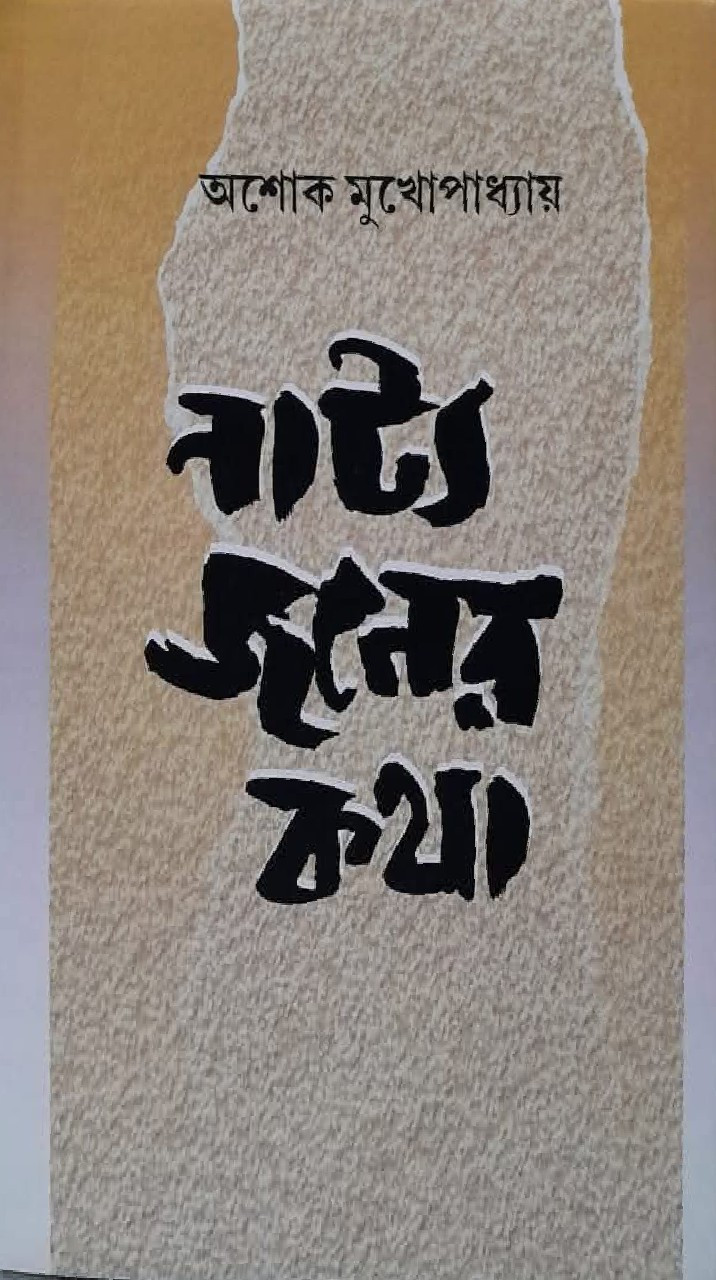 অশোক মুখোপাধ্যায়
নাট্য
জনের
কথা